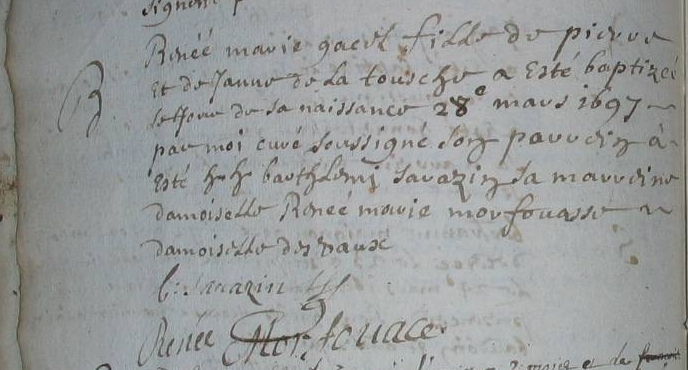 signent
B
Reneé marie gacel fille de pierre
et de Janne de la tousche a esté baptizeé
le Jour de sa naissance 28e mars 1697
par moi curé soussigné son parrein a
esté h h barthlemi sarazin sa marreine
damoiselle Reneé marie morfouasse
damoiselle des vaux
b: Sarazin
Renée Morfouace
et de